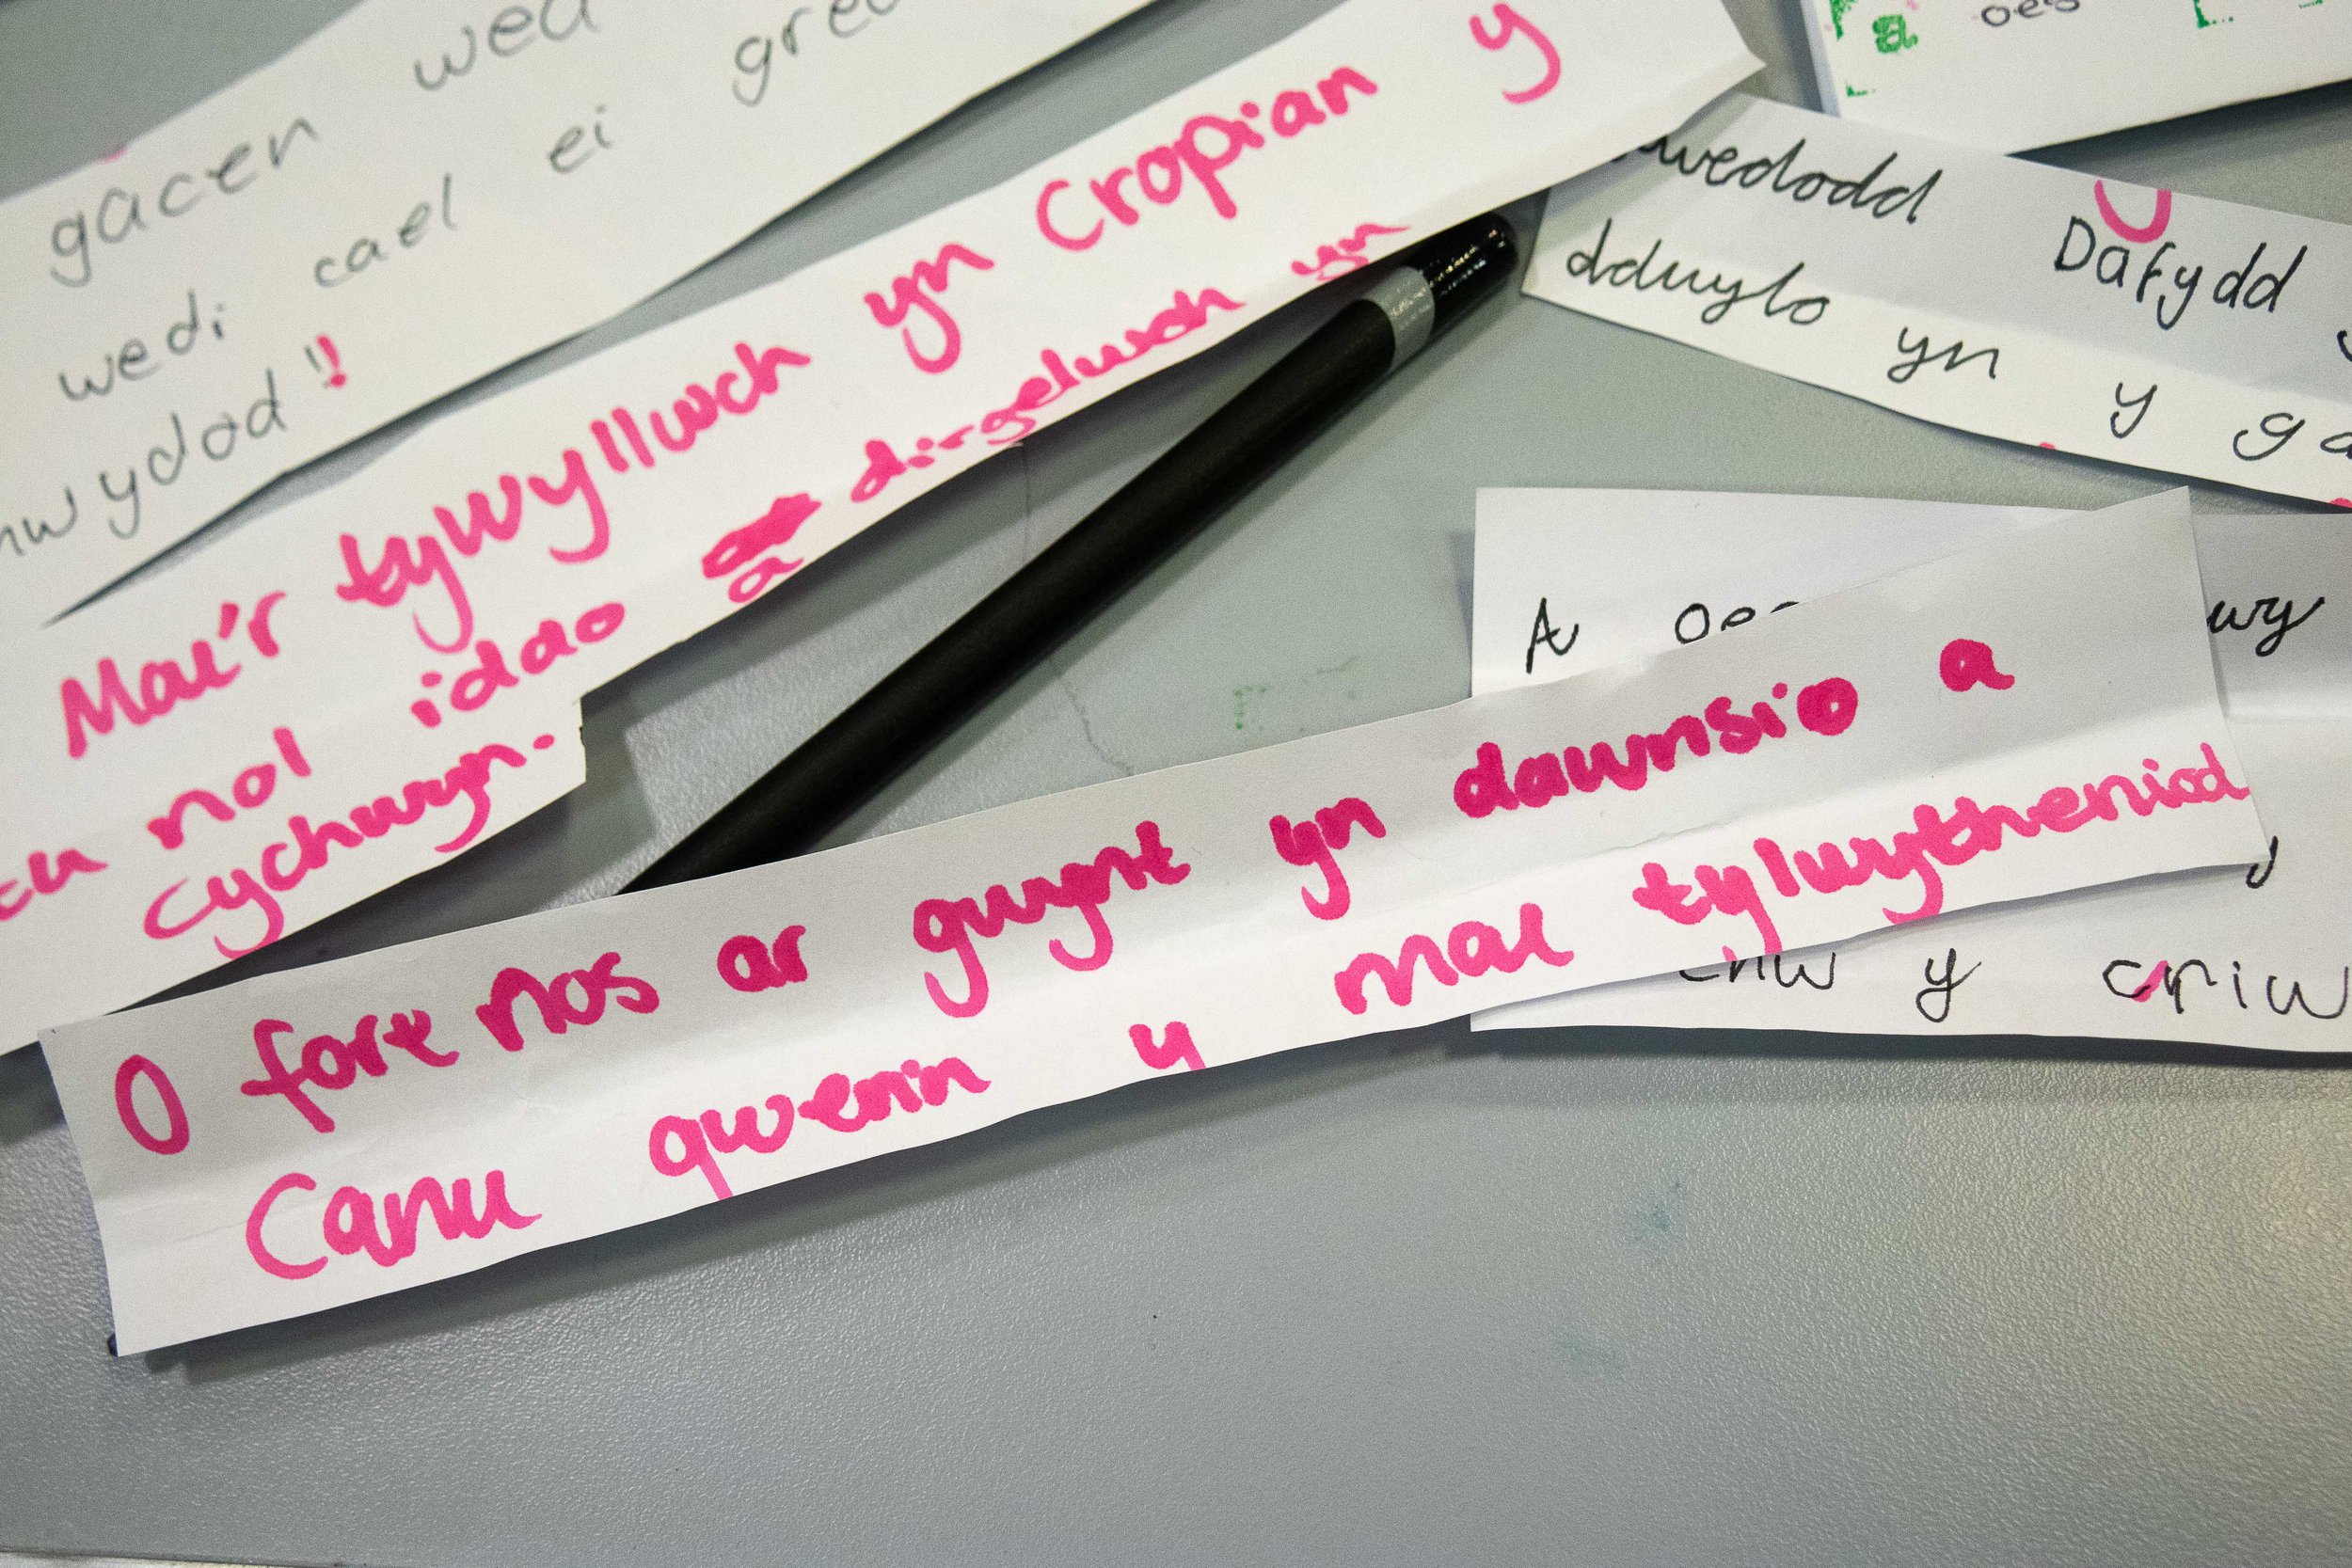 gacen wed
wedi cael ei gre
nwydod !!
Mae'r tywyllwch yn Cropian y
tu nol iddo a dirgelwch yn
cychwyn.
a oes
wedodd Dafydd
dduylo yn y ga
A oe
wy
enw y criw
O fore nos ar gwynt yn dawnsio a
Canu qwerin y mae tylwytheniad